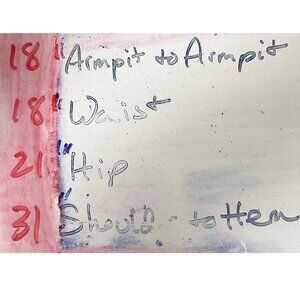 18" Armpit to Armpit
18" Waist
21" Hip
31" Should to Hem